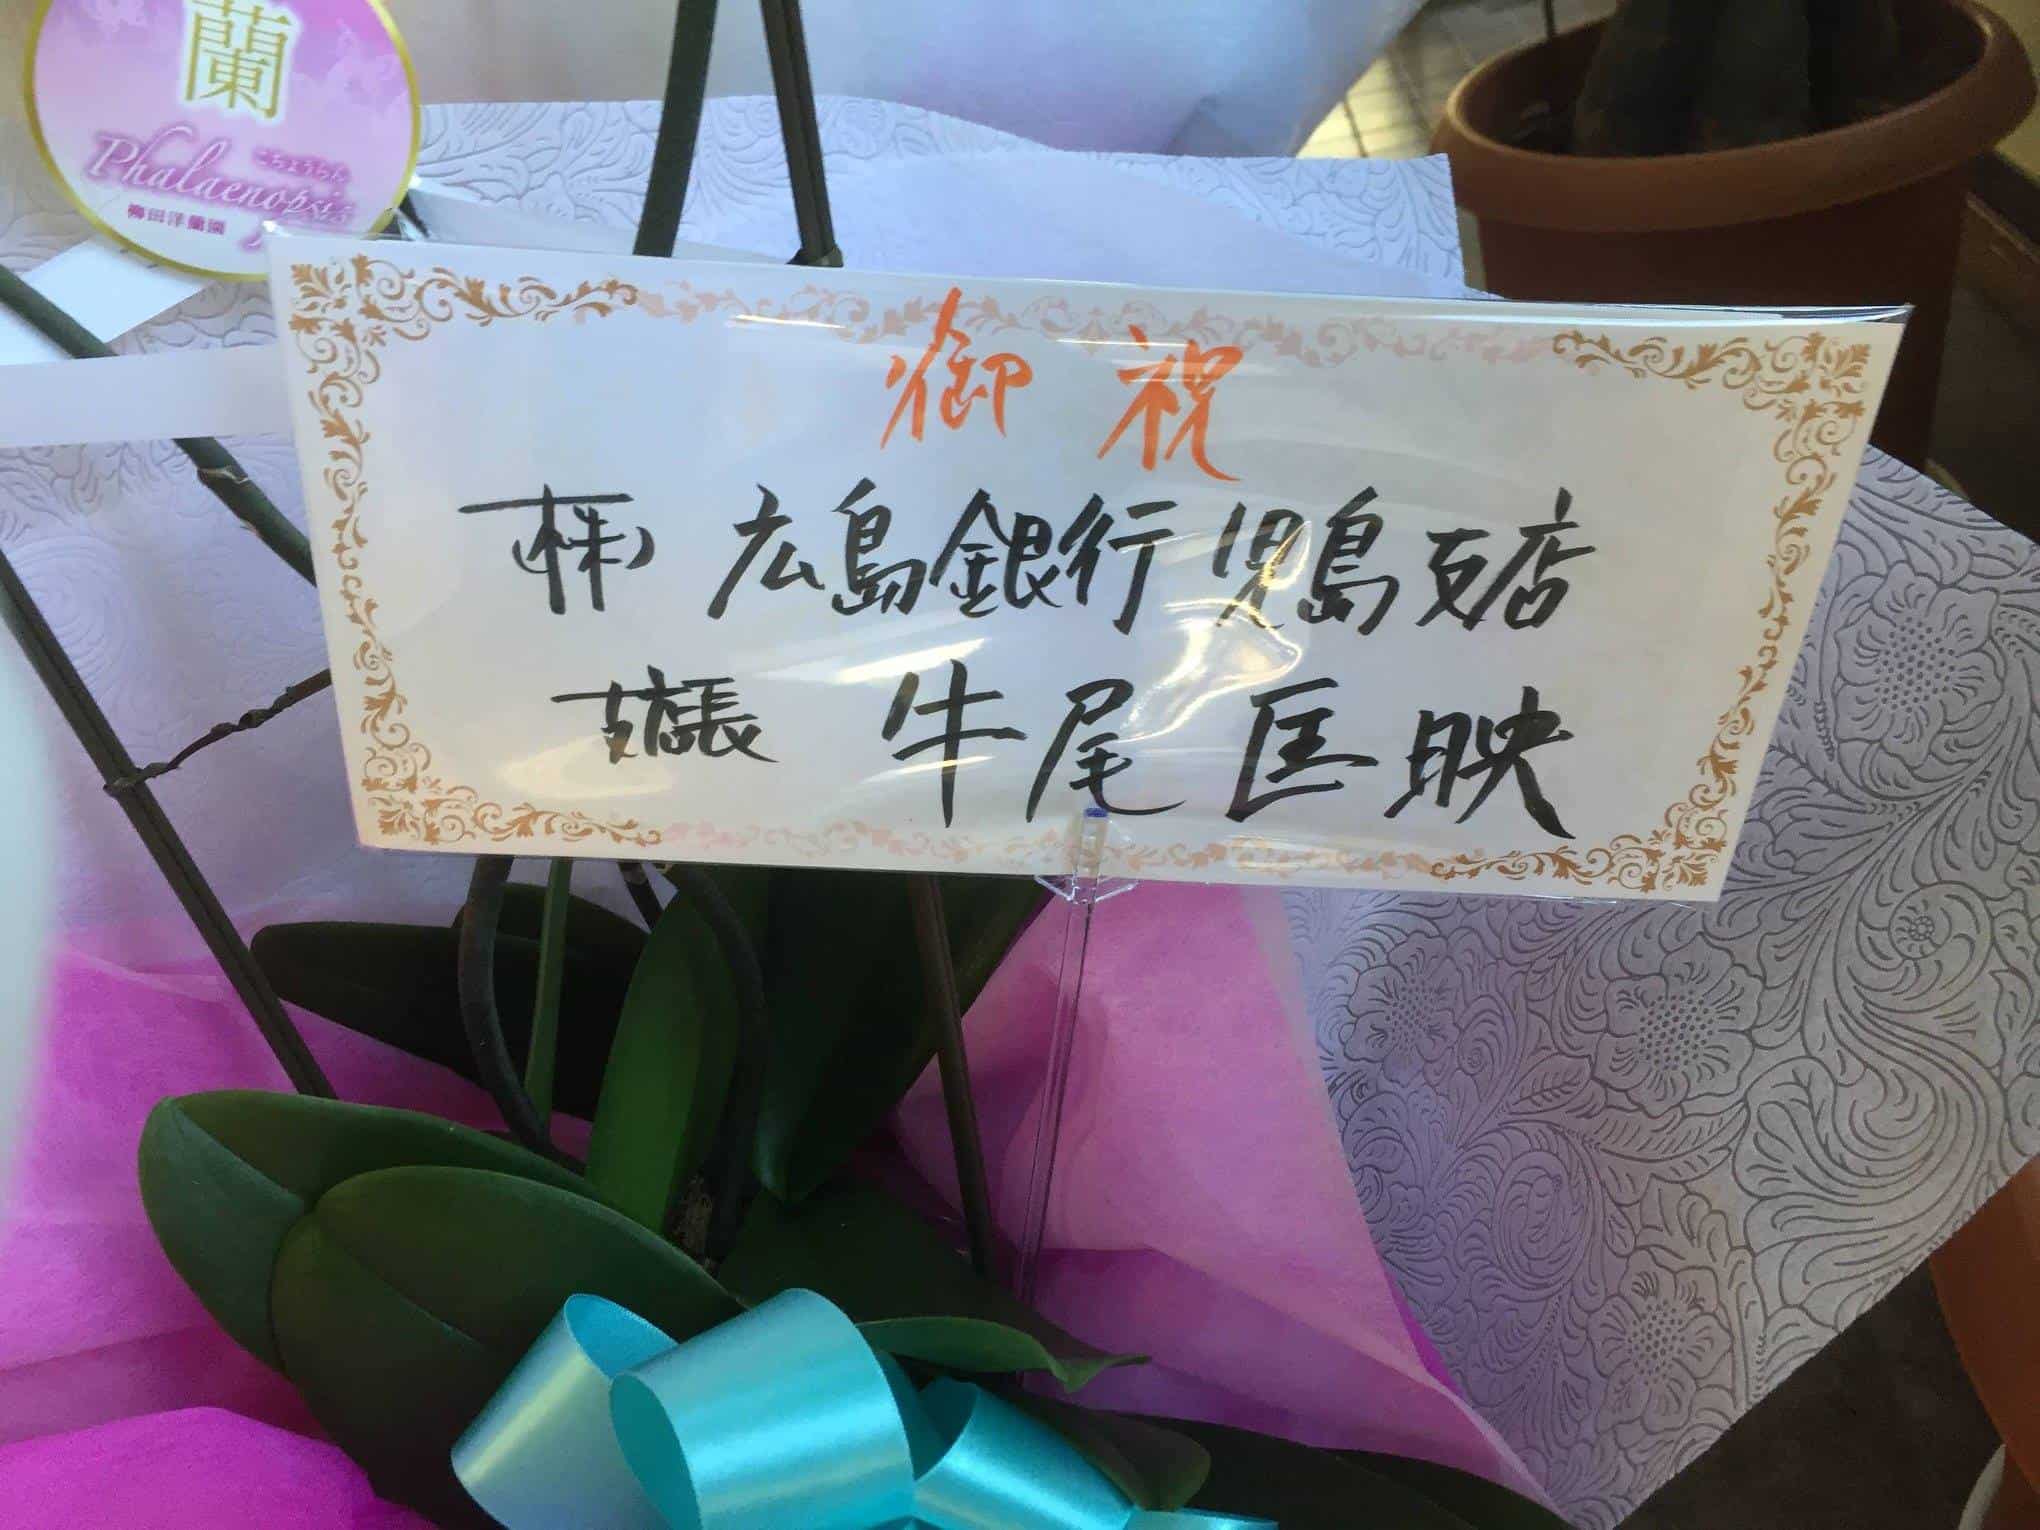 蘭
こちょうらん
Phalaenopsis
御祝
(株) 広島銀行 児島支店
支店長 牛尾 匡映